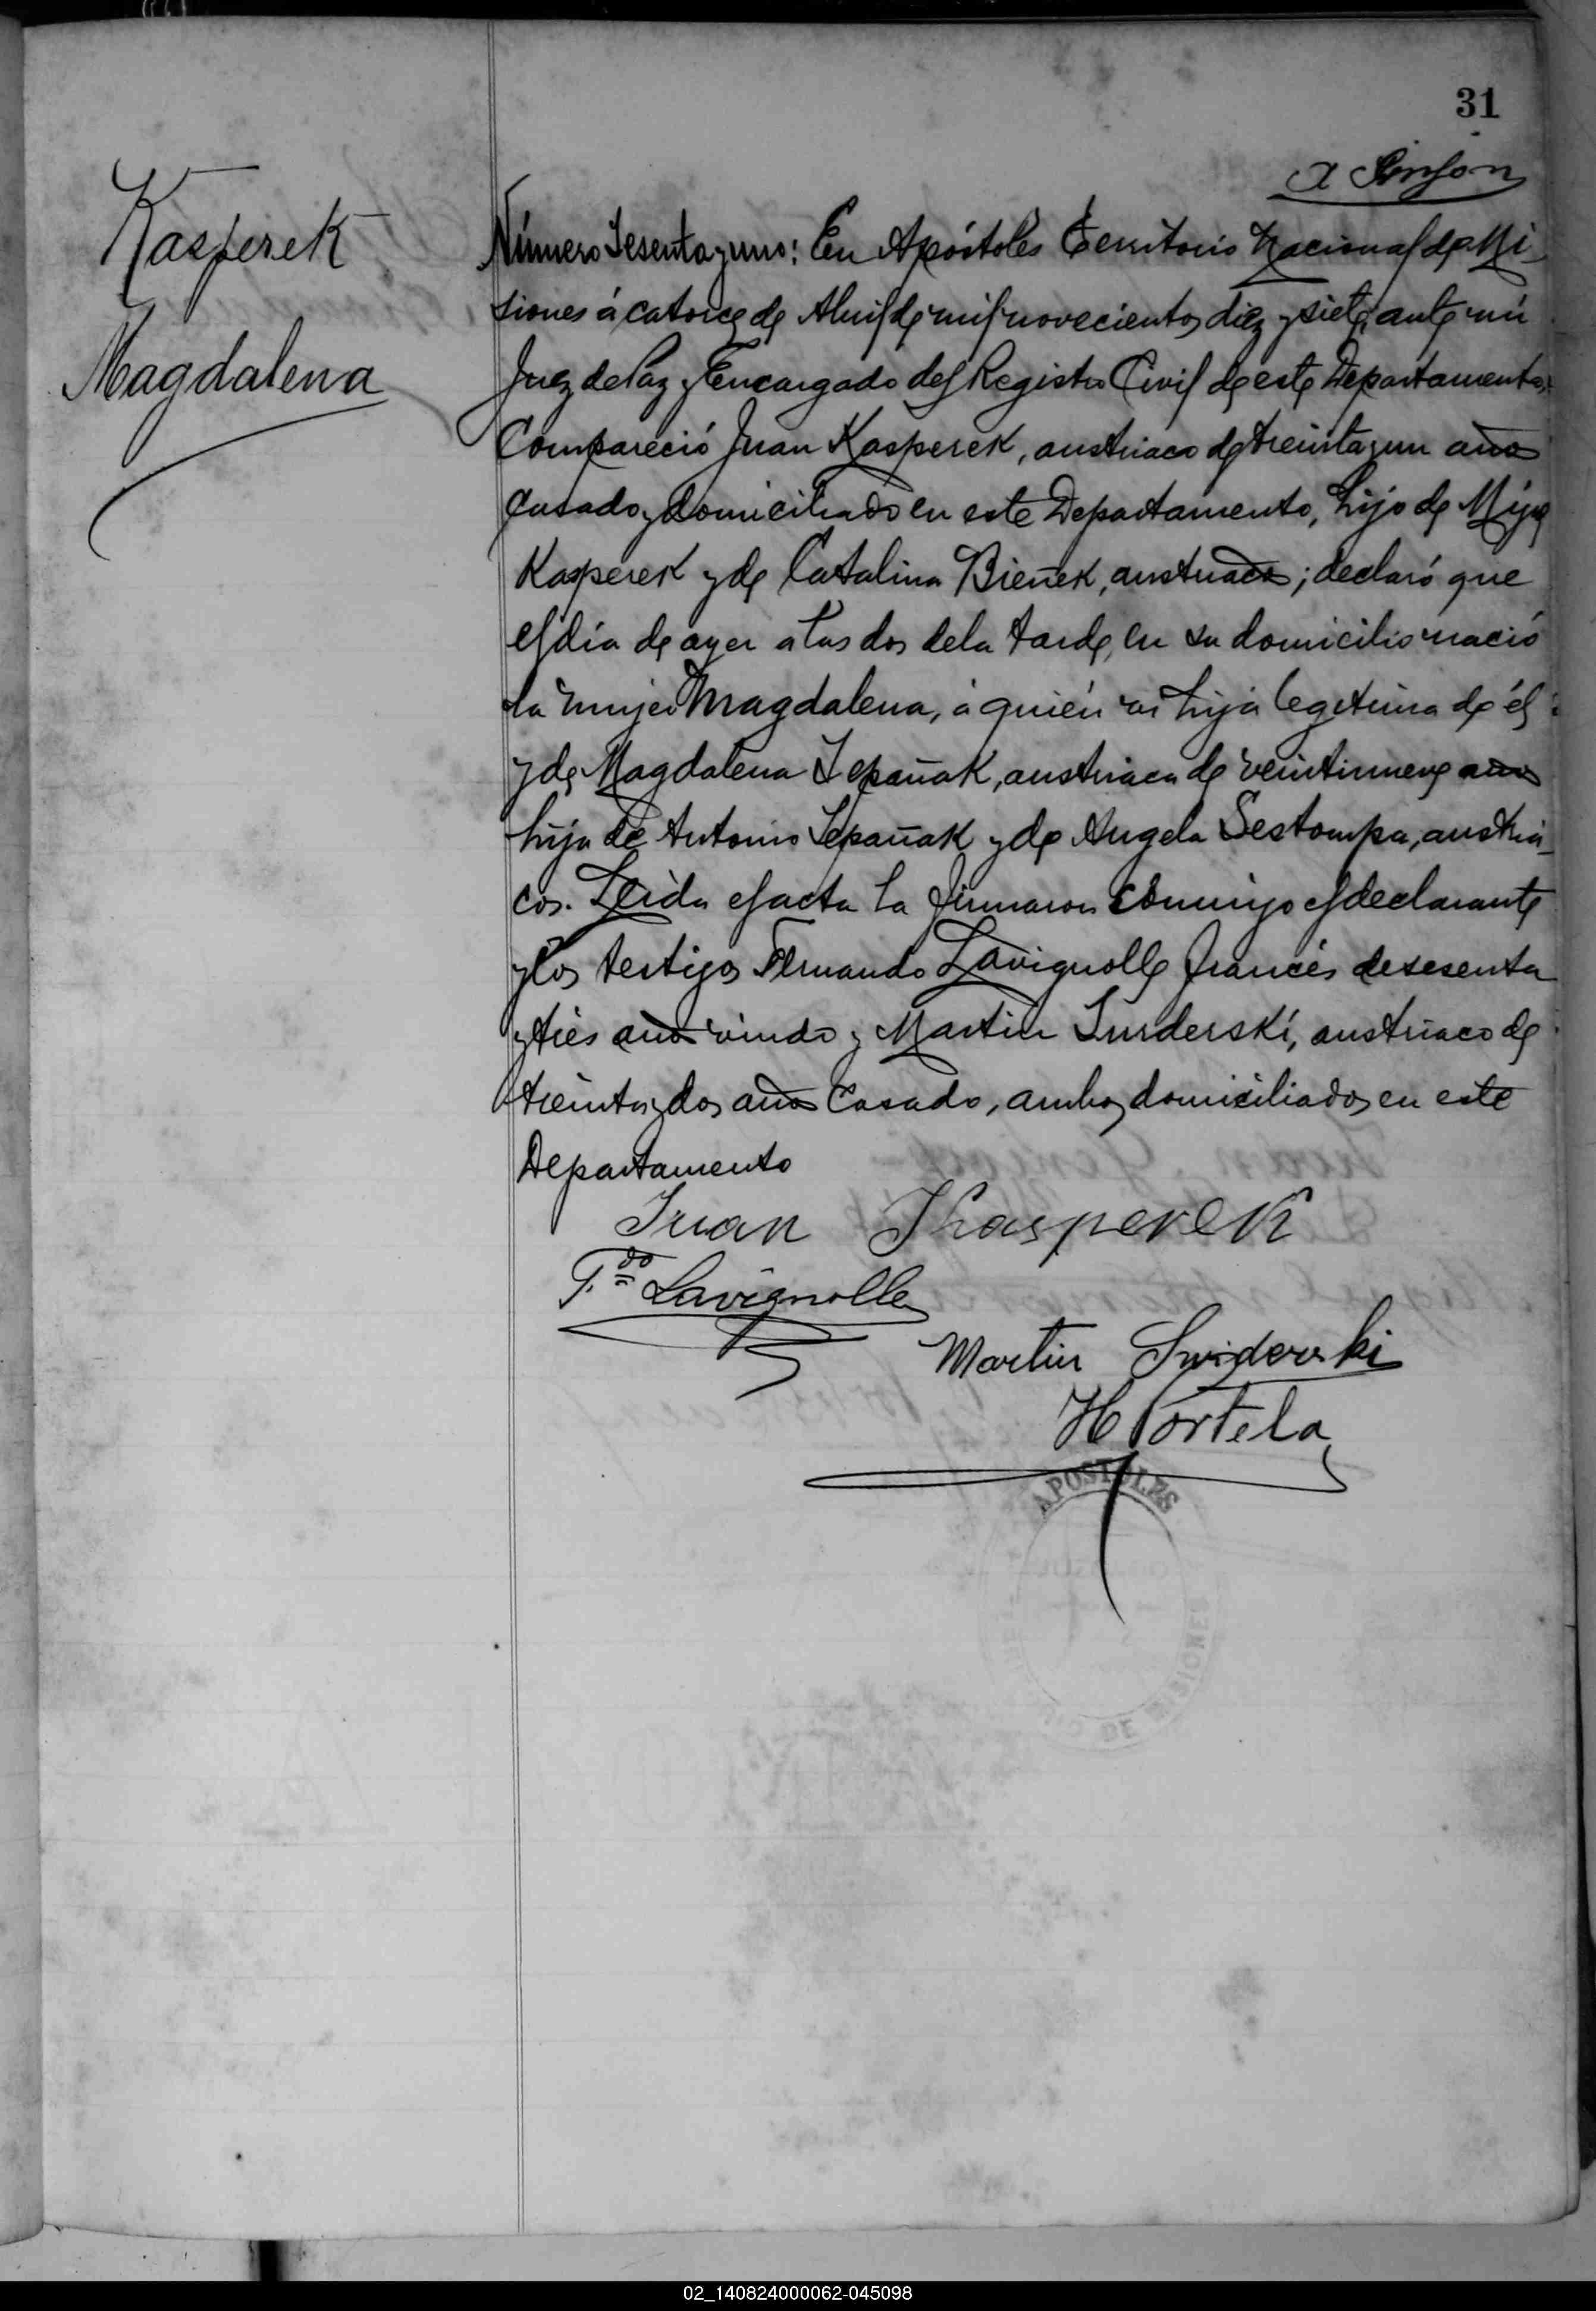 31
Kasperek
Magdalena
Número Sesenta y uno: En Apóstoles Territorio Nacional de Mi-
siones á catorce de Abril de mil novecientos diez y siete, ante mí
Juez de Paz y Encargado del Registro Civil de este Departamento,
Compareció Juan Kasperek, austriaco de treinta y un años
casado y domiciliado en este Departamento, hijo de Migl
Kasperek y de Catalina Bieñek, austriacos; declaró que
el día de ayer a las dos de la tarde, en su domicilio nació
la mujer Magdalena, á quién es hija legitima de él
y de Magdalena Sepañak, austriaca de veintinueve años
hija de Antonio Sepañak y de Angela Sestompa, austria-
cos. Leida el acta la firmaron conmigo el declarante
y los testigos Fernando Lavignolle francés de sesenta
y tres años viudo y Martin Surderski, austriaco de
treinta y dos años Casado, ambos domiciliados en este
Departamento
Juan Kasperek
F.do Lavignolle
Martin Swiderski
H Portela
APOSTOLES
DE MISIONES
02_140824000062-045098